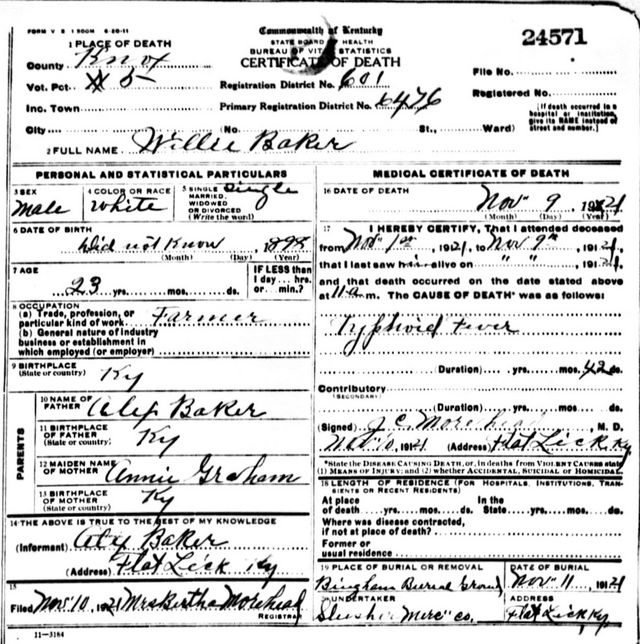 FORM V S 1 500M 5-20-11
Commonwealth of Kentucky
STATE BOARD OF HEALTH
BUREAU OF VITAL STATISTICS
CERTIFICATE OF DEATH
24571
1 PLACE OF DEATH
County Knox
Vot. Pct. 5
Inc. Town
City
Registration District No. 601
Primary Registration District No. 6476
(No. St., Ward)
File No.
Registered No.
[If death occurred in a hospital or institution, give its NAME instead of street and number.]
2 FULL NAME Willie Baker
PERSONAL AND STATISTICAL PARTICULARS
3 SEX Male
4 COLOR OR RACE White
5 SINGLE, MARRIED, WIDOWED OR DIVORCED (Write the word) Single
6 DATE OF BIRTH
Did not Know
(Month) (Day) (Year)
7 AGE
23 yrs. mos. ds.
IF LESS than 1 day... hrs. or min.?
8 OCCUPATION
(a) Trade, profession, or particular kind of work Farmer
(b) General nature of industry
business or establishment in
which employed (or employer)
9 BIRTHPLACE
(State or country) Ky
PARENTS
10 NAME OF FATHER Alex Baker
11 BIRTHPLACE OF FATHER (State or country) Ky
12 MAIDEN NAME OF MOTHER Annie Graham
13 BIRTHPLACE OF MOTHER (State or country) Ky
14 THE ABOVE IS TRUE TO THE BEST OF MY KNOWLEDGE
(Informant) Alex Baker
(Address) Flat Lick Ky
15
Filed Nov 10, 1921 Mrs Bertha Morehead
REGISTRAR
11-3184
MEDICAL CERTIFICATE OF DEATH
16 DATE OF DEATH
Nov 9, 1921
(Month) (Day) (Year)
17 I HEREBY CERTIFY, That I attended deceased
from Nov 1st, 1921, to Nov 9th, 1921,
that I last saw him alive on " ", 1921,
and that death occurred on the date stated above
at 11a m. The CAUSE OF DEATH* was as follows:
Typhoid Fever
(Duration) yrs. mos. 42 ds.
Contributory
(SECONDARY)
(Duration) yrs. mos. ds.
(Signed) J.C. Morehead, M. D.
Nov 10, 1921 (Address) Flat Lick Ky
*State the DISEASE CAUSING DEATH, or, in deaths from VIOLENT CAUSES state (1) MEANS OF INJURY; and (2) whether ACCIDENTAL, SUICIDAL or HOMICIDAL.
18 LENGTH OF RESIDENCE (FOR HOSPITALS, INSTITUTIONS, TRANSIENTS OR RECENT RESIDENTS)
At place of death yrs. mos. ds. In the State yrs. mos. ds.
Where was disease contracted,
if not at place of death?
Former or
usual residence
19 PLACE OF BURIAL OR REMOVAL
Bingham Burial Ground
DATE OF BURIAL
Nov 11, 1921
20 UNDERTAKER
Slusher Merc Co.
ADDRESS
Flat Lick Ky